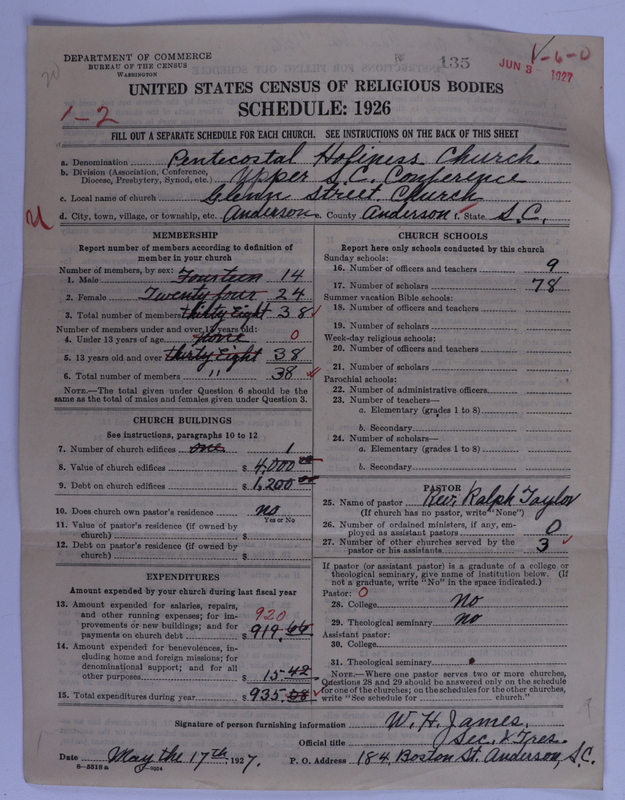 DEPARTMENT OF COMMERCE
BUREAU OF THE CENSUS
WASHINGTON
135
JUN 3 1927
1-6-0
UNITED STATES CENSUS OF RELIGIOUS BODIES
SCHEDULE: 1926
1-2
FILL OUT A SEPARATE SCHEDULE FOR EACH CHURCH. SEE INSTRUCTIONS ON THE BACK OF THIS SHEET
a. Denomination Pentecostal Holiness Church.
b. Division (Association, Conference, Diocese, Presbytery, Synod, etc.) Upper S.C. Conference
c. Local name of church Glenn Street Church
d. City, town, village, or township, etc. Anderson e. County Anderson f. State S.C.
MEMBERSHIP
Report number of members according to definition of
member in your church
Number of members, by sex:
1. Male Fourteen 14
2. Female Twenty four 24
3. Total number of members thirty eight 38
Number of members under and over 13 years old:
4. Under 13 years of age none 0
5. 13 years old and over thirty eight 38
6. Total number of members " 38
NOTE.—The total given under Question 6 should be the
same as the total of males and females given under Question 3.
CHURCH BUILDINGS
See instructions, paragraphs 10 to 12
7. Number of church edifices one 1
8. Value of church edifices $ 4,000 00
9. Debt on church edifices $ 1,200 00
10. Does church own pastor's residence no
Yes or No
11. Value of pastor's residence (if owned by
church) $
12. Debt on pastor's residence (if owned by
church) $
EXPENDITURES
Amount expended by church during last fiscal year
13. Amount expended for salaries, repairs,
and other running expenses; for im-
provements or new buildings; and for
payments on church debt $ 919.66
920
14. Amount expended for benevolences, in-
cluding home and foreign missions; for
denominational support; and for all
other purposes $ 15.42
15. Total expenditures during year $ 935.08
CHURCH SCHOOLS
Report here only schools conducted by this church
Sunday schools:
16. Number of officers and teachers 9
17. Number of scholars 78
Summer vacation Bible schools:
18. Number of officers and teachers
19. Number of scholars
Week-day religious schools:
20. Number of officers and teachers
21. Number of scholars
Parochial schools:
22. Number of administrative officers
23. Number of teachers—
a. Elementary (grades 1 to 8)
b. Secondary
24. Number of scholars—
a. Elementary (grades 1 to 8)
b. Secondary
PASTOR
25. Name of pastor Rev. Ralph Taylor
(If church has no pastor, write "None")
26. Number of ordained ministers, if any, em-
ployed as assistant pastors 0
27. Number of other churches served by the
pastor or his assistants 3
If pastor (or assistant pastor) is a graduate of a college or
theological seminary, give name of institution below. (If
not a graduate, write "No" in the space indicated.)
Pastor: 0
28. College no
29. Theological seminary no
Assistant pastor:
30. College
31. Theological seminary
NOTE.—Where one pastor serves two or more churches,
Questions 28 and 29 should be answered only on the schedule
for one of the churches; on the schedules for the other churches,
write "See schedule for church."
Signature of person furnishing information W. H. James.
Official title Sec. & Tres.
Date May the 17th, 1927. P. O. Address 184, Boston St. Anderson, S.C.
8-5518a